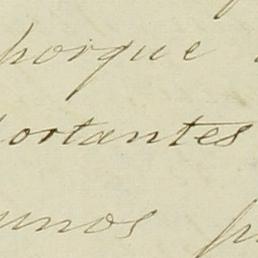 porque
ortantes
unos